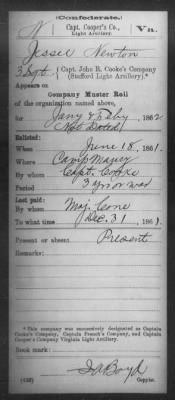 (Confederate.)
N
Capt. Cooper's Co.,
Light Artillery.
Va.
Jessee Newton
3 Sgt, Capt. John R. Cooke's Company
(Stafford Light Artillery).
Appears on
Company Muster Roll
of the organization named above,
for Jany & Feby, 1862
(Not Dated)
Enlisted:
When June 18, 1861
Where Camp Maury
By whom Capt. Cooke
Period 3 yrs or war
Last paid:
By whom Maj. Cone
To what time Dec. 31, 1861.
Present or absent Present
Remarks:
* This company was successively designated as Captain
Cooke's Company, Captain French's Company, and Captain
Cooper's Company Virginia Light Artillery.
Book mark:
Copyist.